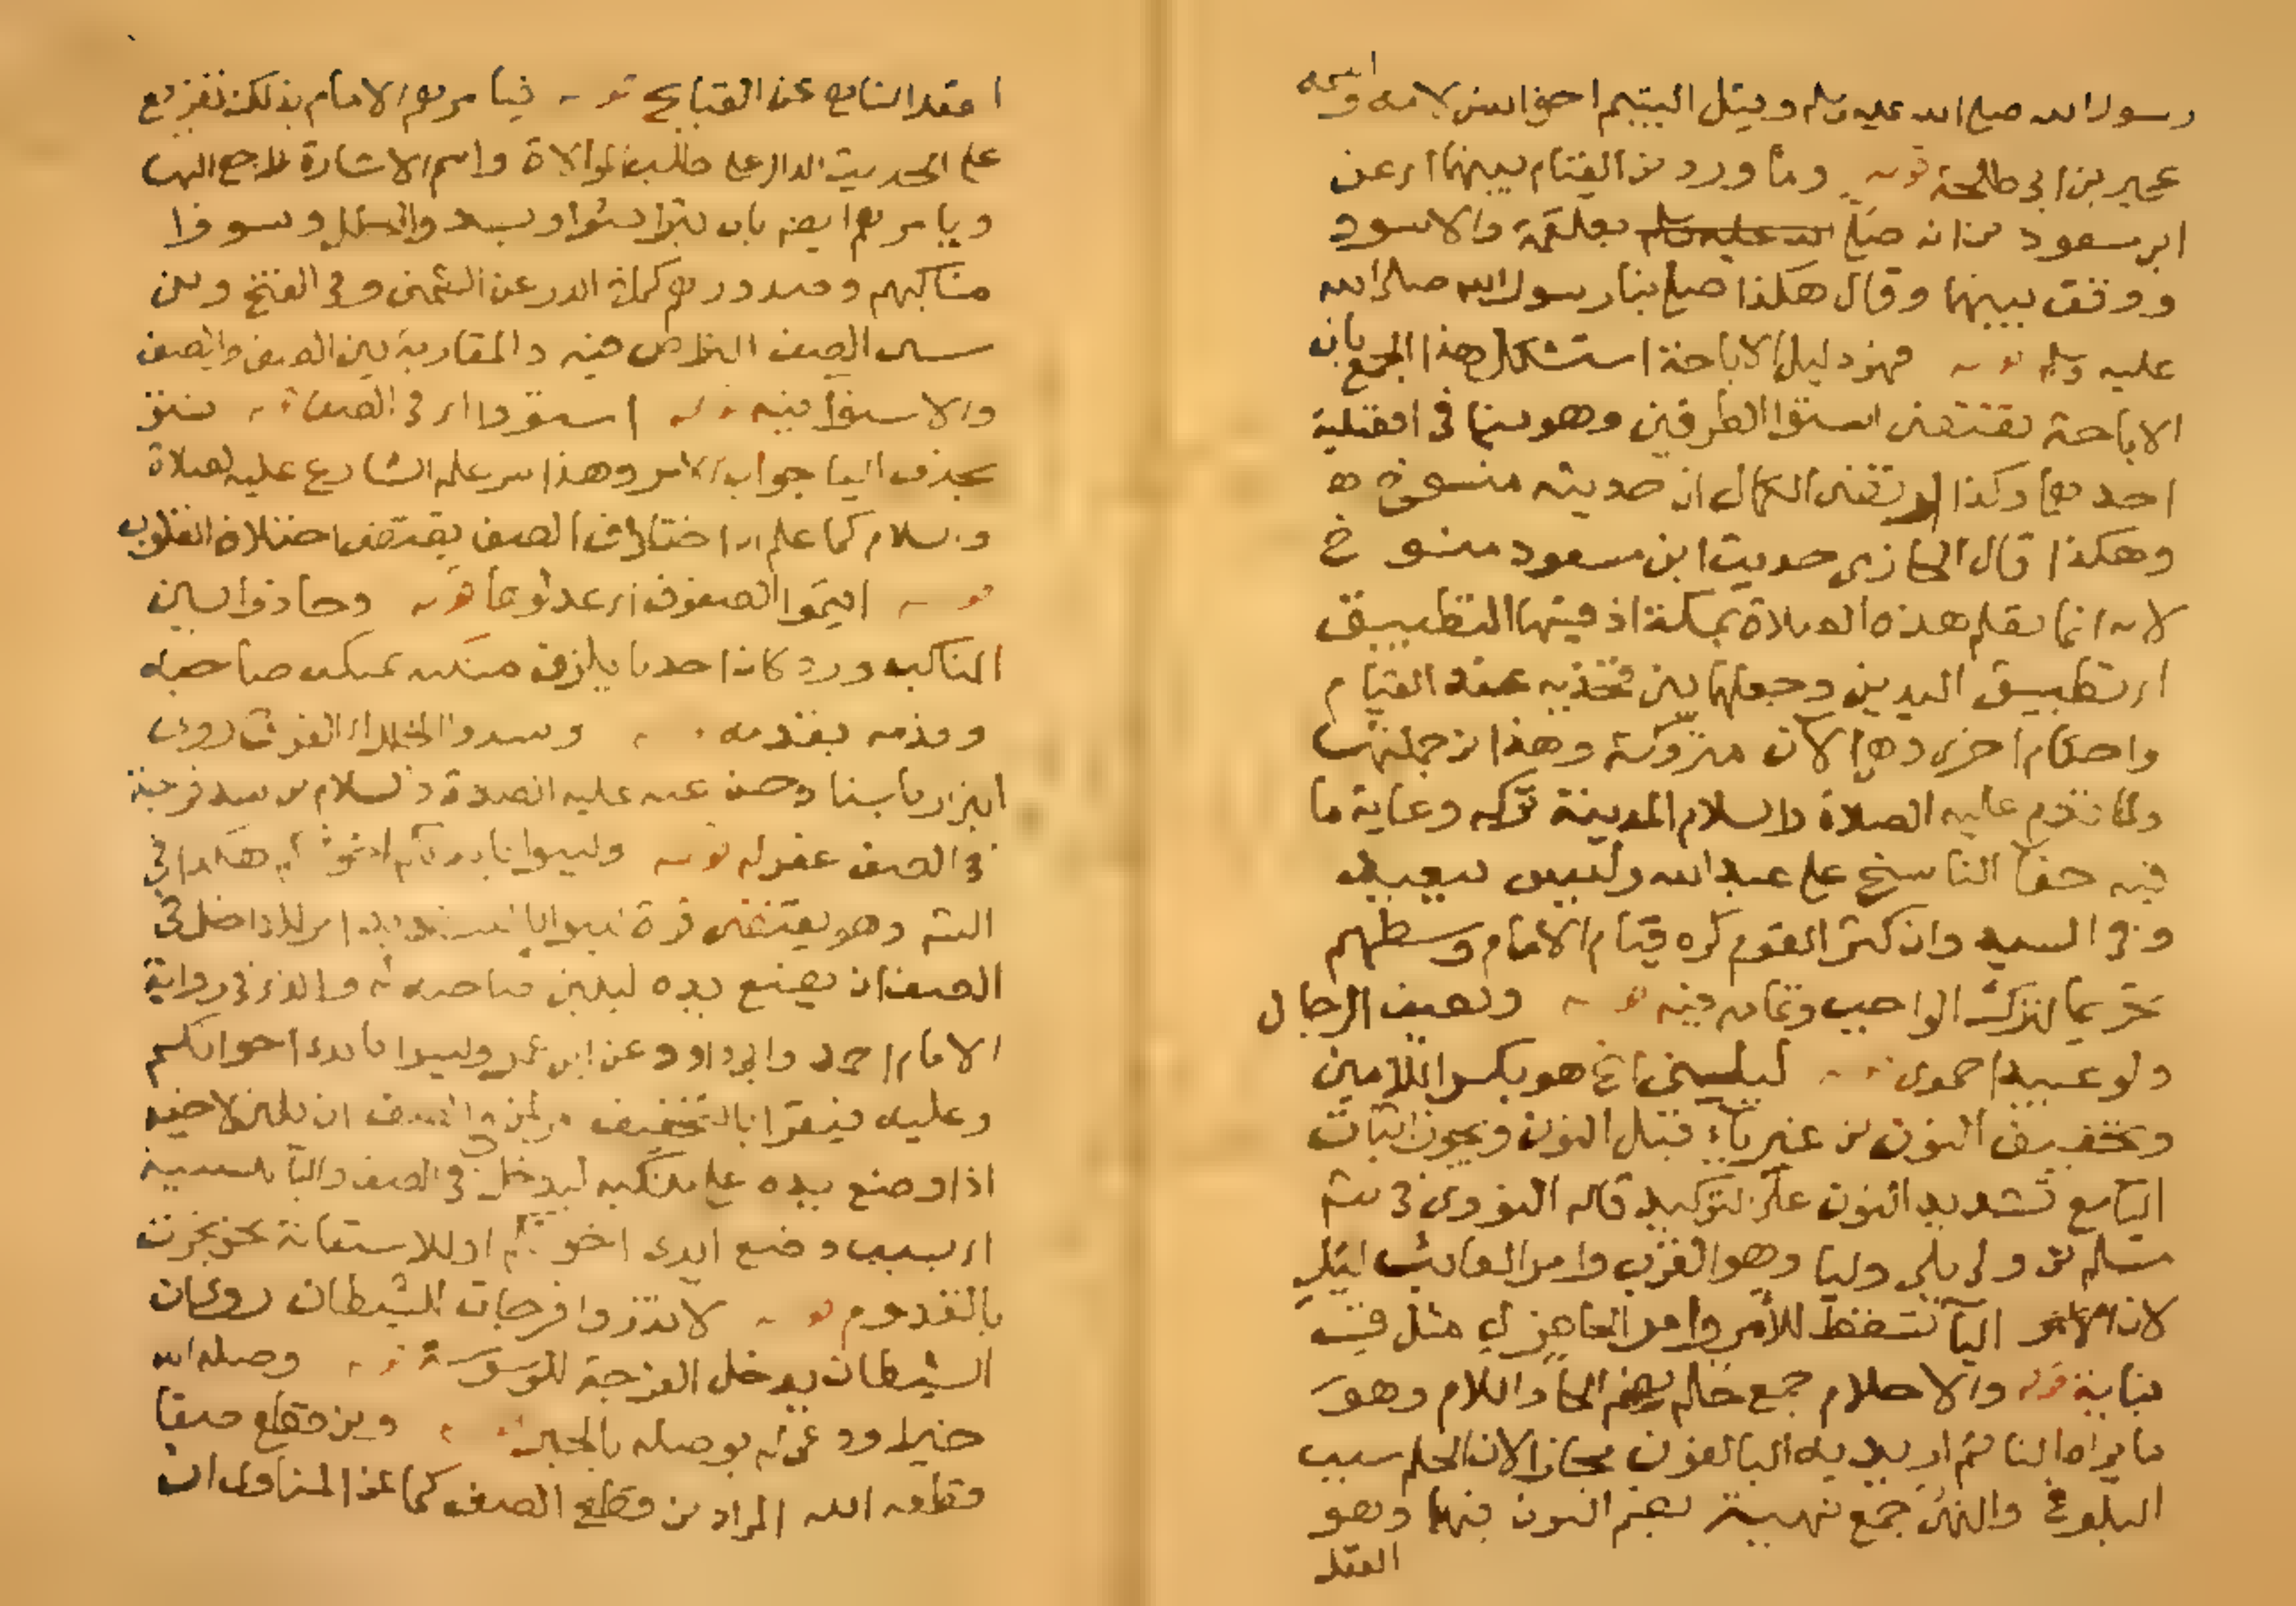 رسول الله صلى الله عليه وسلم وقيل اليتيم اخو انس لامه واسمه
عمير بن ابي طلحة قوله وما ورد من القيام بينهما اي عن
ابن مسعود من انه صلى الله عليه وسلم بعلقمة والاسود
ووقف بينهما وقال هكذا صلى بنا رسول الله صلى الله
عليه وسلم قوله فهو دليل الاباحة استشكل هذا الجمع بان
الاباحة تقتضي استوا الطرفين وهو ينافي افضلية
احدهما وكذا ارتضى الكمال ان حديثه منسوخ
وهكذا قال الحازمي حديث ابن مسعود منسوخ
لانه انما تعلم هذه الصلاة بمكة اذ فيها التطبيق
اي تطبيق اليدين وجعلهما بين فخذيه عند القيام
واحكام اخرى وهي الآن متروكة وهذا من جملتها
ولما قدم عليه الصلاة والسلام المدينة تركه وغاية ما
فيه خفا الناسخ على عبد الله وليس ببعيد
وفي السيد وان كثر القوم كره قيام الامام وسطهم
تحريما لترك الواجب وتمامه فيه قوله ويصف الرجال
ولو عبيدا حموي قوله ليليني الخ هو بكسر اللامين
وتخفيف النون من غير ياء قبل النون ويجوز اثبات
اليا مع تشديد النون على التوكيد قاله النووي في شرح
مسلم من ولي يلي وليا وهو القرب وامر الغائب ليل
لان اليآ تسقط للأمر وامر الحاضر ل مثل ق
بنابية قوله والاحلام جمع حلم بضم الحآ واللام وهو
ما يراه النائم اريد به البالغون مجازا لان الحلم سبب
البلوغ والنهى جمع نهية بضم النون فيها وهو
العقل
العقل الناهي عن القبايح قوله فيامرهم الامام بذلك تفريع
على الحديث الدال على طلب الموالاة واسم الاشارة راجع اليها
ويامرهم ايضا بان يتراصوا ويسدوا الخلل ويسووا
مناكبهم وصدورهم كما في الدر عن الشمني وفي الفتح ومن
سنن الصف التراص فيه والمقاربة بين الصف والصف
والاستوا فيه قوله استووا اي في الصف قوله تستو
بحذف اليا جواب الامر وهذا سر علمه الشارع عليه الصلاة
والسلام كما علم ان اختلاف الصف يقتضي اختلاف القلوب
قوله اقيموا الصفوف اي عدلوها قوله وحاذوا بين
المناكب ورد كان احدنا يلزق منكبه بمنكب صاحبه
وقدمه بقدمه قوله وسدوا الخلل اي الفرج روى
البزار باسناد حسن عنه عليه الصلاة والسلام من سد فرجة
في الصف غفر له قوله ولينوا بايديكم اخوانكم هكذا في
وهو يقتضي اي للداخل في
الصف ان يضع يده ليلين صاحبه له والذي في رواية
الامام احمد وابي داود عن ابن عمر ولينوا بايدي اخوانكم
وعليه فيقرا بالتخفيف ان يلين لاخيه
اذا وضع يده على منكبه ليدخل في الصف والبآ للسببية
اي بسبب وضع ايدي اخوانكم او للاستعانة نحو نجرت
بالقدوم قوله لا تذروا فرجات للشيطان روي ان
الشيطان يدخل الفرجة للوسوسة قوله وصله الله
خبر او دعا له بوصله بالخير قوله ومن قطع صفا
قطعه الله المراد من قطع الصف كما في المناوي ان